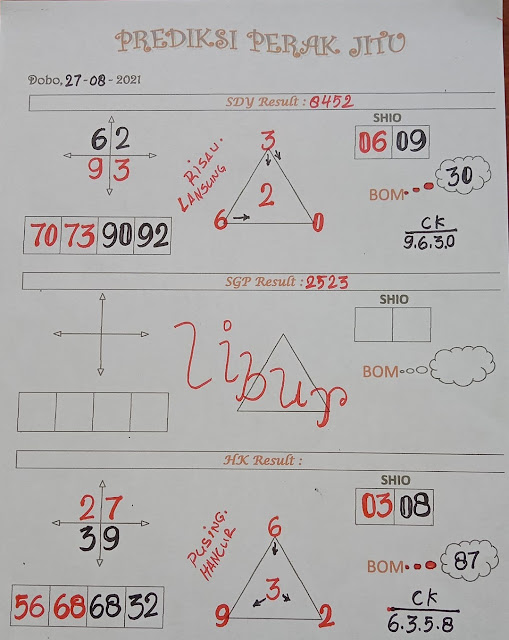 PREDIKSI PERAK JITU
Dobo, 27-08-2021
SDY Result : 8452
62
93
RISAU.
LANSUNG
3
2
6
0
SHIO
06 09
BOM
30
CK
9.6.3.0
70 73 90 92
SGP Result : 2523
SHIO
Libur
BOM
HK Result :
27
39
PUSING.
HANCUR
6
3
9
2
SHIO
03 08
BOM
87
CK
6.3.5.8
56 68 68 32